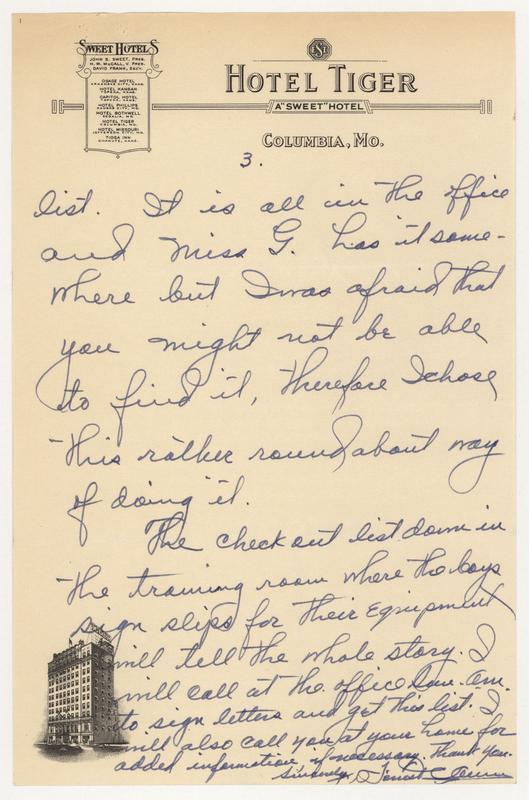 SWEET HOTELS
JOHN B. SWEET, PRES.
H. W. McCALL, V. PRES.
DAVID FRANK, SECY.
OSAGE HOTEL
ARKANSAS CITY, KANS.
HOTEL KANSAN
TOPEKA, KANS.
CAPITOL HOTEL
TOPEKA, KANS.
HOTEL PHILLIPS
KANSAS CITY, MO.
HOTEL BOTHWELL
SEDALIA, MO.
HOTEL TIGER
COLUMBIA, MO.
HOTEL MISSOURI
JEFFERSON CITY, MO.
TIOGA INN
CHANUTE, KANS.
HOTEL TIGER
A "SWEET" HOTEL
COLUMBIA, MO.
3.
list. It is all in the office
and Miss G. has it some-
where but I was afraid that
you might not be able
to find it, therefore I chose
this rather round about way
of doing it.
The check out list down in
the training room where the boys
sign slips for their equipment
will tell the whole story. I
will call at the office Sun. am.
to sign letters and get this list. I
will also call you at your home for
added information if necessary. Thank you.
Sincerely,